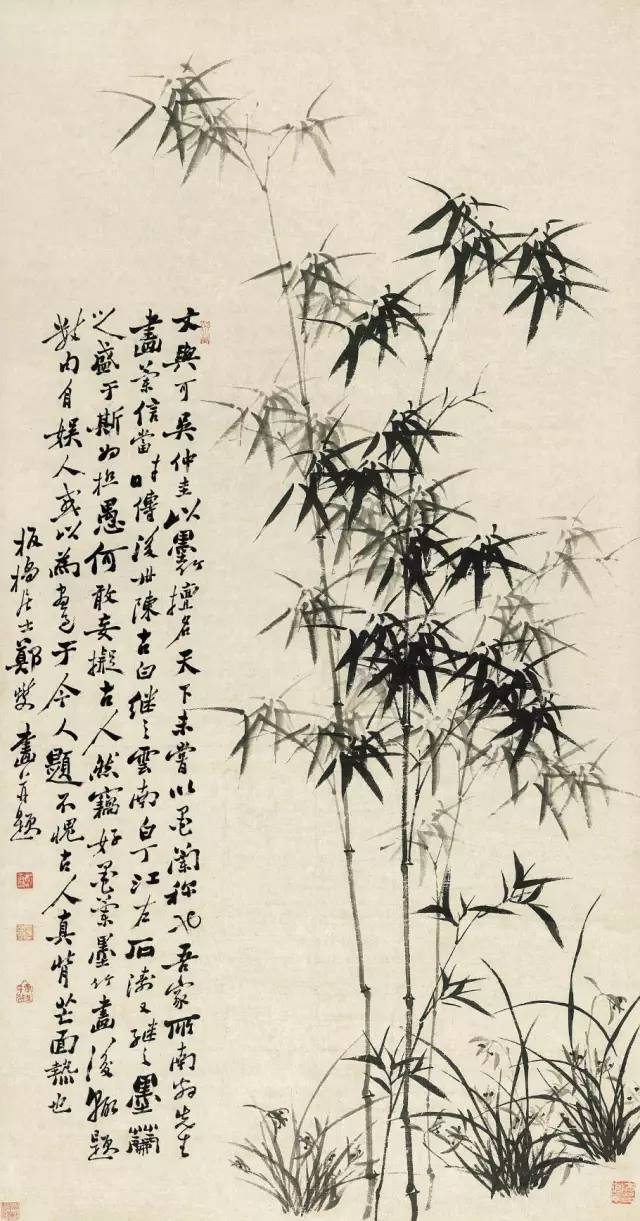 文與可吳仲圭以墨竹擅名天下未嘗以墨蘭稱也吾家所南翁先生
畫蘭信當时傳後世陳古白繼之雲南白丁江右石濤又繼之墨蘭
之盛于斯为極愚何敢妄擬古人然竊好墨蘭墨竹畫後輒題
自娱人或以為于今人題不愧古人真背芒面熱也
板橋居士鄭燮畫并題